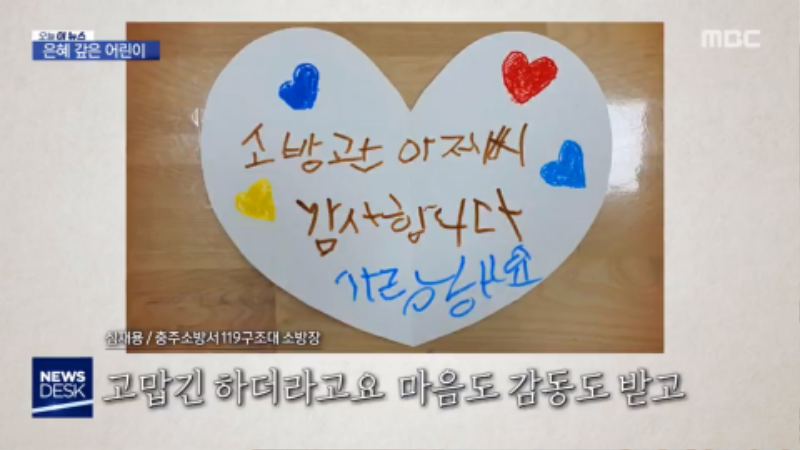 오늘 이 뉴스
은혜 갚은 어린이
MBC
소방관 아저씨
감사합니다
사랑해요
심재용 / 충주소방서 119구조대 소방장
NEWS
DESK
고맙긴 하더라고요 마음도 감동도 받고